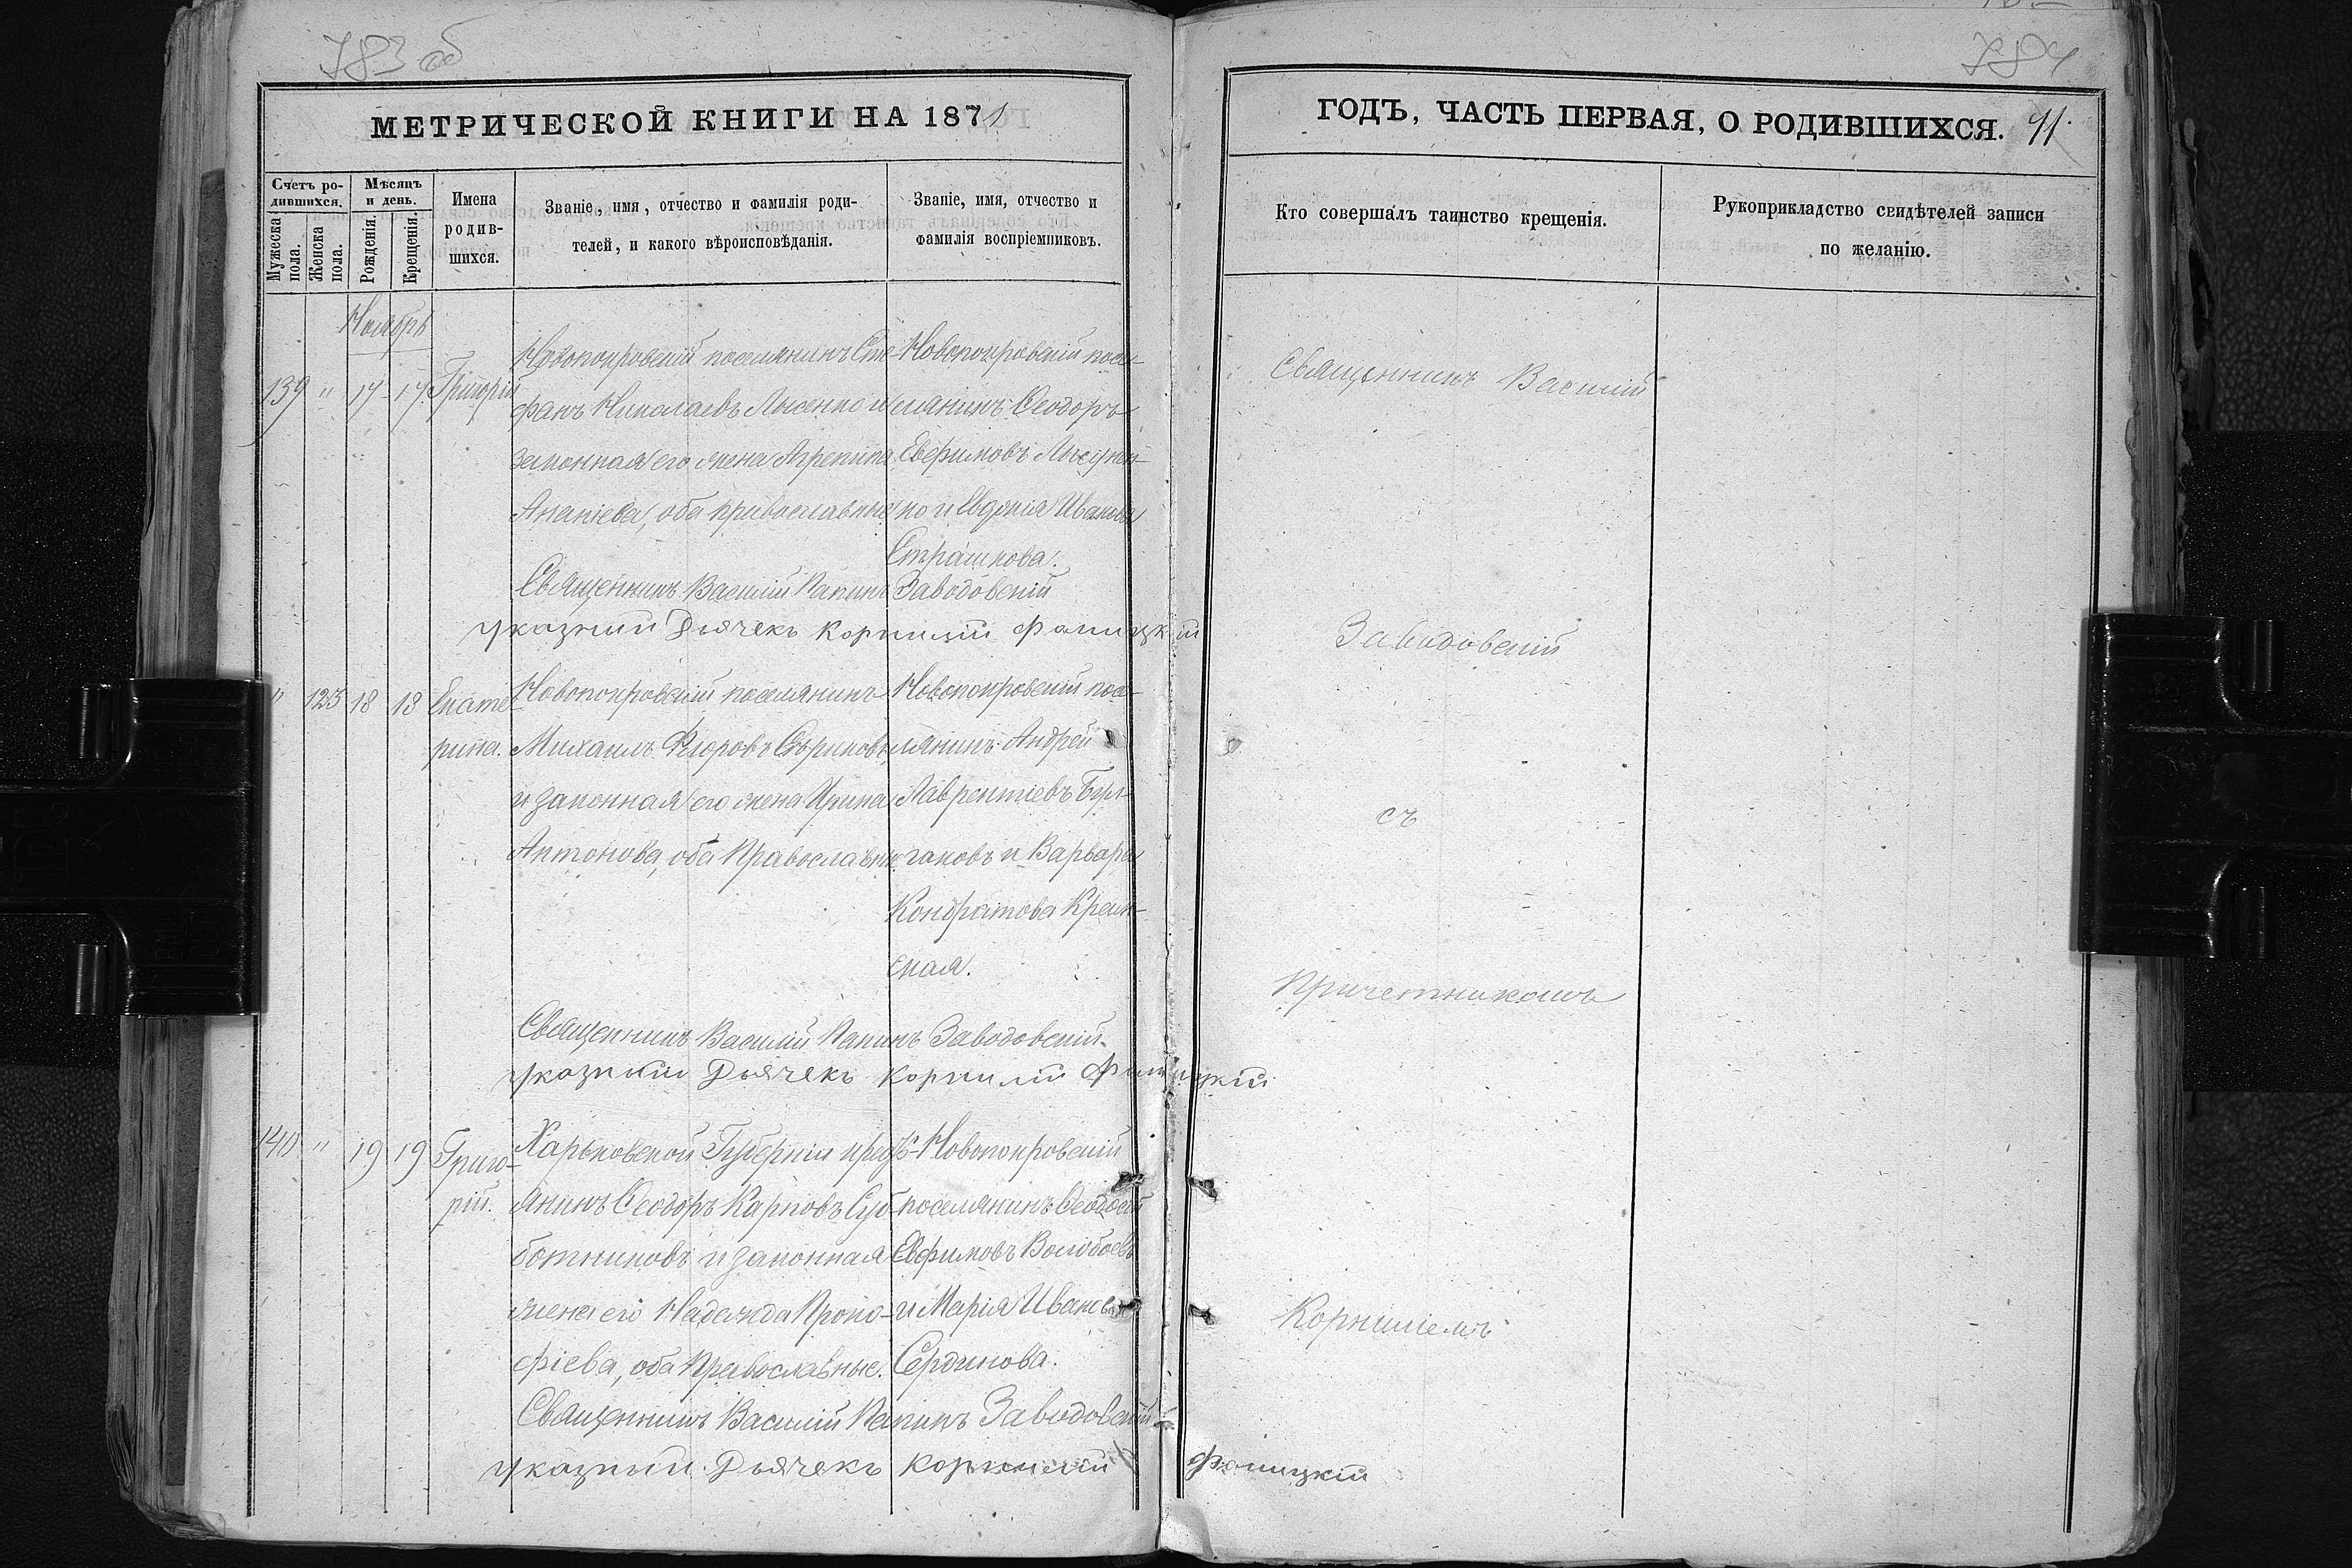 783 об
784
МЕТРИЧЕСКОЙ КНИГИ НА 1871
ГОДЪ, ЧАСТЬ ПЕРВАЯ, О РОДИВШИХСЯ.
Счетъ ро-
дившихся.
Мужеска пола.
Женска пола.
Мѣсяцъ
и день.
Рожденія.
Крещенія.
Имена
родив-
шихся.
Званіе, имя, отчество и фамилія роди-
телей, и какого вѣроисповѣданія.
Званіе, имя, отчество и
фамилія воспріемниковъ.
Кто совершалъ таинство крещенія.
Рукоприкладство свидѣтелей записи
по желанію.
Ноябрь
139 " 17 17 Григорій
Новопокровскій поселянинъ Сте-
фанъ Николаевъ Лысенко и
законная его жена Агрепина
Ананіева, оба православные
Новопокровскій посе-
лянинъ Ѳеодоръ
Евфимовъ Лысен-
ко и Евдокія Иванова
Страшкова.
Священникъ Василій Заводовскій
указный Дьячекъ Корнилій
" 123 18 18 Екате-
рина.
Новопокровскій поселянинъ
Михаилъ Егоровъ Сѣриковъ
и законная его жена Ирина
Антонова, оба Православные
Новопокровскій посе-
лянинъ Андрей
Лаврентіевъ Бур-
лаковъ и Варвара
Кондратова
ская.
Священникъ Василій Заводовскій
указный Дьячекъ Корнилій
140 " 19 19 Григо-
рій.
Харьковской Губерніи кресть-
янинъ Ѳеодоръ Карповъ Суб-
ботниковъ и законная
жена его Надежда Проко-
фіева, оба Православные.
Новопокровскій
поселянинъ Ѳеодосій
Евфимовъ Волобоевъ
и Марія Иванова
Сердикова.
Священникъ Василій Заводовскій
указный Дьячекъ Корнилій
Священникъ Василій
Заводовскій
съ
Причетникомъ
Корниліемъ